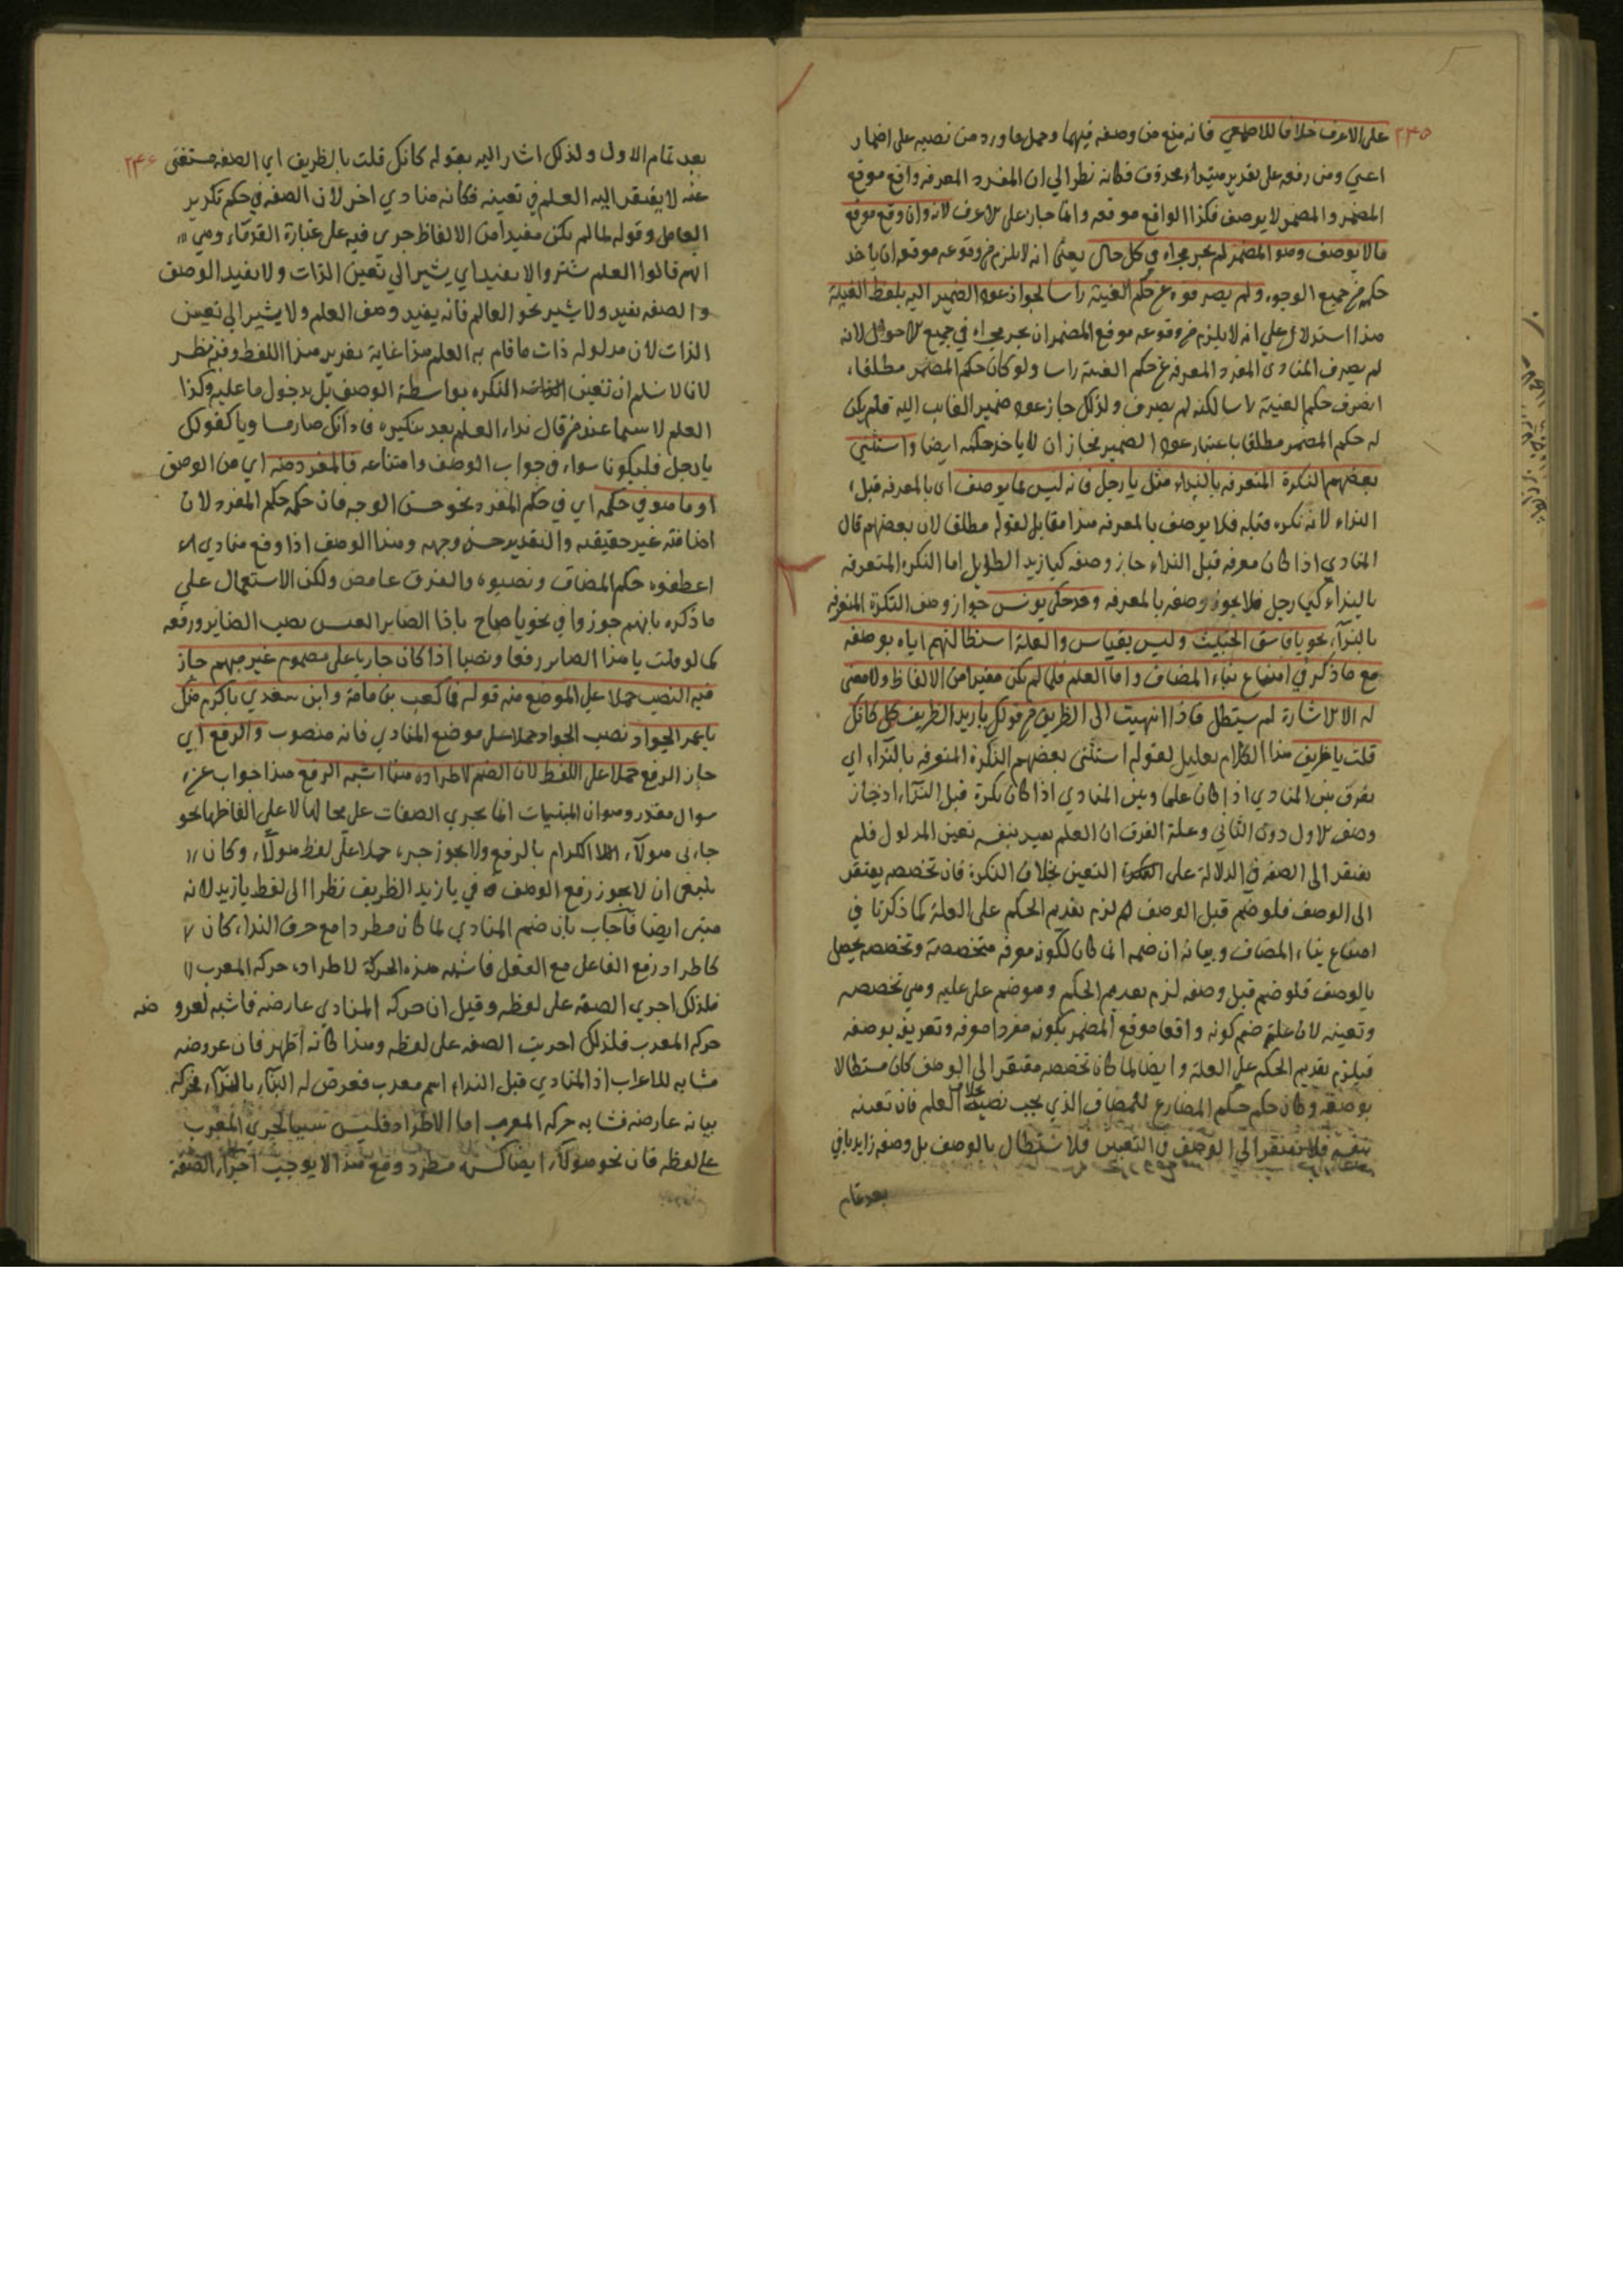 ٢٤٥
على الاعرف خلافا للاصمعي فانه منع من وصفه فيهما وحمل ما ورد من نصبه على اضمار
اعني ومن رفعه على تقدير مبتداء محذوف فكانه نظر الى ان المفرد المعرفه واقع موقع
المضمر والمضمر لا يوصف فكذا الواقع موقعه وانما جاز على الاعرف لانه وان وقع موقع
مالا يوصف وهو المضمر لم يجر مجراه في كل حال يعني انه لا يلزم من وقوعه موقعه ان ياخذ
حكمه من جميع الوجوه ولم يصرفوه عن حكم الغيبة راسا لجواز عود الضمير اليه بلفظ الغيبة
هذا استدلال على انه لا يلزم من وقوعه موقع المضمر ان يجر مجراه في جميع الاحوال لانه
لم يصرف المنادى المفرد المعرفه عن حكم الغيبة راسا ولو كان حكم المضمر مطلقا
انصرف حكم الغيبة راسا لكنه لم يصرف ولذلك جاز عود ضمير الغايب اليه فلم يكن
له حكم المضمر مطلقا باعتبار عود الضمير فجاز ان لا ياخذ حكمه ايضا واستثنى
بعضهم النكرة المتعرفه بالنداء مثل يا رجل فانه ليس مما يوصف اى بالمعرفه قبل
النداء لانه نكره قبله فلا يوصف بالمعرفه هذا مقابل لقوله مطلقا لان بعضهم قال
المنادي اذا كان معرفه قبل النداء جاز وصفه كيا زيد الطويل اما النكره المتعرفه
بالنداء كيا رجل فلا يجوز وصفه بالمعرفه وقد حكى يونس جواز وصف النكرة المتعرفه
بالنداء نحو يا فاسق الخبيث وليس بقياس والعلة استطالتهم اياه بوصفه
مع ما ذكر في امتناع بناء المضاف واما العلم فلما لم يكن مفيدا من الالفاظ ولا معنى
له الا الاشارة لم يستطل فاذا انتهيت الى الظريف من قولك يا زيد الظريف كانك
قلت يا ظريف هذا الكلام تعليل لقوله استثنى بعضهم النكرة المتعرفه بالنداء اي
يفرق بين المنادي اذا كان علما وبين المنادي اذا كان نكرة قبل النداء اذ جاز
وصف الاول دون الثاني وعلة الفرق ان العلم يفيد بنفسه تعين المدلول فلم
يفتقر الى الصفه في الدلالة على التعين بخلاف النكرة فان تخصصه يفتقر
الى الوصف فلو ضم قبل الوصف لزم تقديم الحكم على العلة كما ذكرنا في
امتناع بناء المضاف وبيانه ان ضمه انما كان لكونه معرفه متخصصة وتخصصه يحصل
بالوصف فلو ضم قبل وصفه لزم تقديم الحكم وهو ضم على عليه وهي تخصصه
وتعينه لان علة ضم كونه واقعا موقع المضمر بكونه مفردا معرفه وتعريفه بوصفه
فيلزم تقديم الحكم على العلة وايضا لما كان تخصصه مفتقرا الى الوصف كان مستطالا
بوصفه وكان حكمه حكم المضارع للمضاف الذي يجب نصبه بخلاف العلم فان تعينه
بنفسه فلا يفتقر الى الوصف في التعين فلا يستطال بالوصف بل وصفه زايد ياتي
بعد تمام
٢٤٦
بعد تمام الاول ولذلك اشار اليه بقوله كانك قلت يا لظريف اي الصفه مستغنى
عنه لا يفتقر اليه العلم في تعينه فكانه منادي اخر لان الصفه في حكم تكرير
العامل وقوله لما لم يكن مفيدا من الالفاظ جرى فيه على عبارة القدماء وهي
انهم قالوا العلم يشير ولا يفيد اي يشير الى تعين الذات ولا يفيد الوصف
والصفه تفيد ولا تشير نحو العالم فانه يفيد وصف العلم ولا يشير الى تعين
الذات لان مدلوله ذات ما قام به العلم هذا غاية تقرير هذا اللفظ وفيه نظر
لانا لا نسلم ان تعين النكره بواسطة الوصف بل بدخول ما عليه وكذا
العلم لا سيما عند من قال نداء العلم بعد تنكيره فاذا كل صار ما ويا كقولك
يا رجل فليكونا سواء في جواب الوصف وامتناعه فالمفرد منه اي من الوصف
او ما هو في حكمه اي في حكم المفرد نحو حسن الوجه فان حكمه حكم المفرد لان
اضافته غير حقيقه والتقدير حسن وجهه وهذا الوصف اذا وقع منادي
اعطوه حكم المضاف ونصبوه والفرق غامض ولكن الاستعمال على
ما ذكره بانهم جوزوا في نحو يا صاح ياذا الضامر العنس نصب الضامر ورفعه
كما لو قلت يا هذا الضامر رفعا ونصبا اذا كان جاريا على مضموم غير مبهم جاز
فيه النصب حملا على الموضع منه قوله فما كعب بن مامة وابن سعدي باكرم منك
يا عمر الجوادا نصب الجواد حملا على موضع المنادي فانه منصوب والرفع اي
جاز الرفع حملا على اللفظ لان الضم لاطراده هنا اشبه الرفع هذا جواب عن
سوال مقدر وهو ان المبنيات انما يجري الصفات على محالها لا على الفاظها نحو
جاءنى هولاء الكرام بالرفع ولا يجوز جره حملا على لفظ هولاء وكان
ينبغى ان لا يجوز رفع الوصف في يا زيد الظريف نظرا الى لفظ يا زيد لانه
مبنى ايضا فاجاب بان ضم المنادي لما كان مطردا مع حرف النداء كان
كاطراد رفع الفاعل مع الفعل فاشبه هذه الحركة لاطراده حركه المعرب
فلذلك اجري الصفه على لفظه وقيل ان حركه المنادى عارضه فاشبه لعروضه
حركه المعرب فلذلك اجريت الصفه على لفظه وهذا كانه اظهر فان عروضه
مشابه للاعراب اذ المنادي قبل النداء اسم معرب فعرض له البناء بالنداء فحركه
بيانه عارضه فشابه حركه المعرب اما الاطراد فليس سببا لجري المعرب
على لفظه فان نحو هولاء ايضا كسره مطرد ومع هذا لا يوجب اجراء الصفة